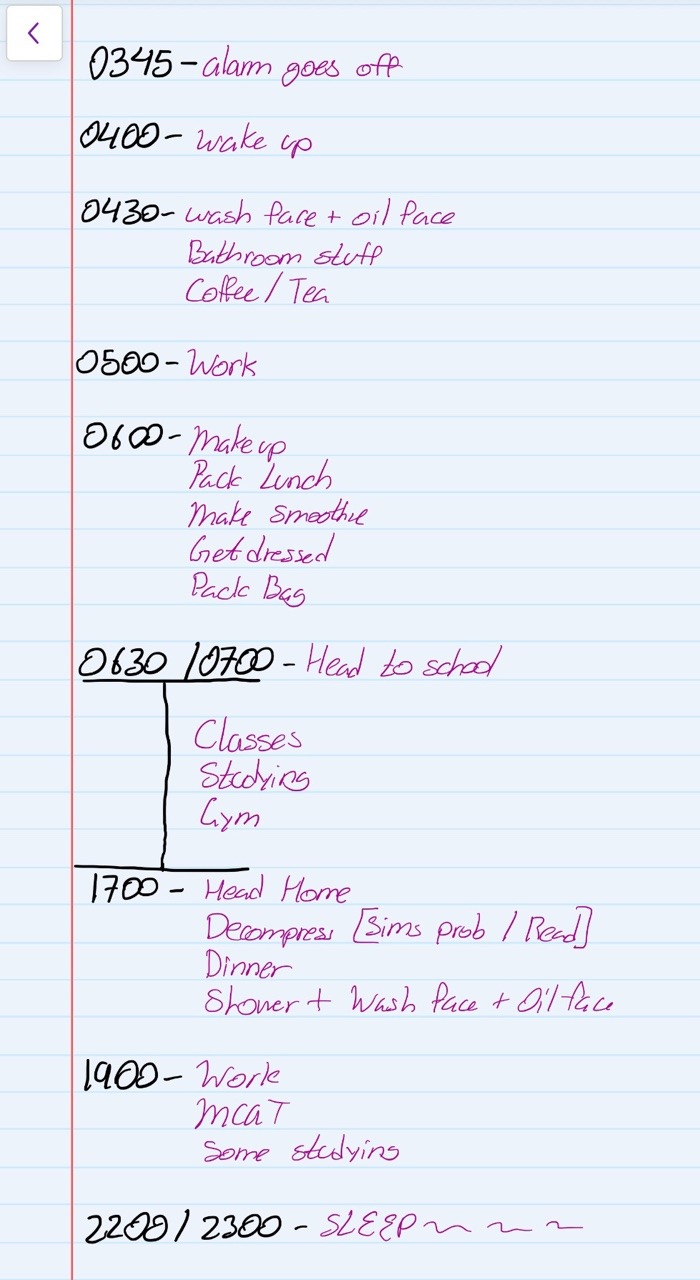 0345 - alarm goes off
0400 - wake up
0430 - wash face + oil face
Bathroom stuff
Coffee / Tea
0500 - Work
0600 - Makeup
Pack Lunch
Make Smoothie
Get dressed
Pack Bag
0630 / 0700 - Head to school
Classes
Studying
Gym
1700 - Head Home
Decompress [Sims prob / Read]
Dinner
Shower + Wash face + Oil face
1900 - Work
MCAT
Some studying
2200 / 2300 - SLEEP ~ ~ ~